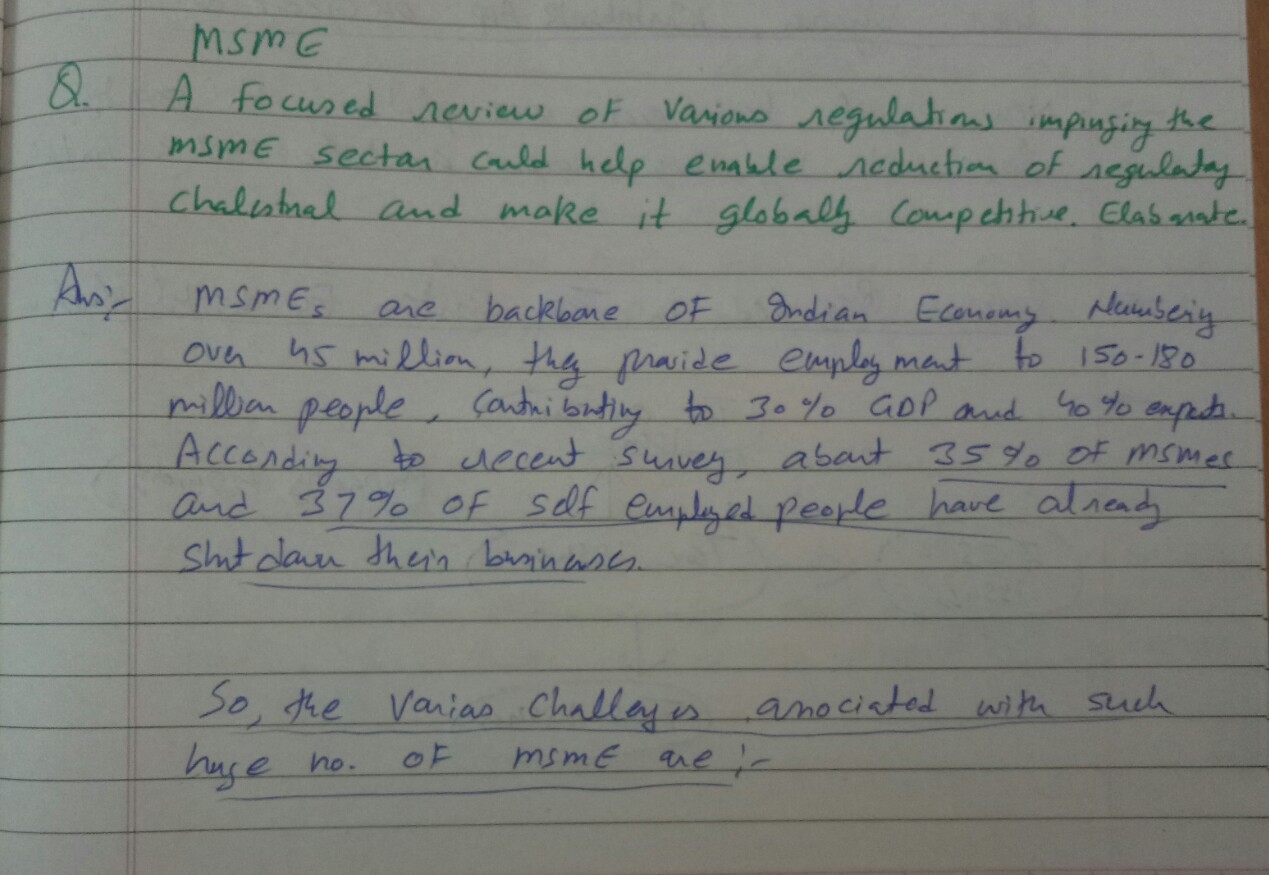 MSME
Q. A focused review of various regulations impinging the
MSME sector could help enable reduction of regulatory
cholestrol and make it globally competitive. Elaborate.
Ans:- MSMEs are backbone of Indian Economy. Numbering
over 45 million, they provide employment to 150-180
million people, contributing to 30% GDP and 40% exports.
According to recent survey, about 35% of MSMEs
and 37% of self employed people have already
shut down their businesses.
So, the various challenges associated with such
huge no. of MSME are :-